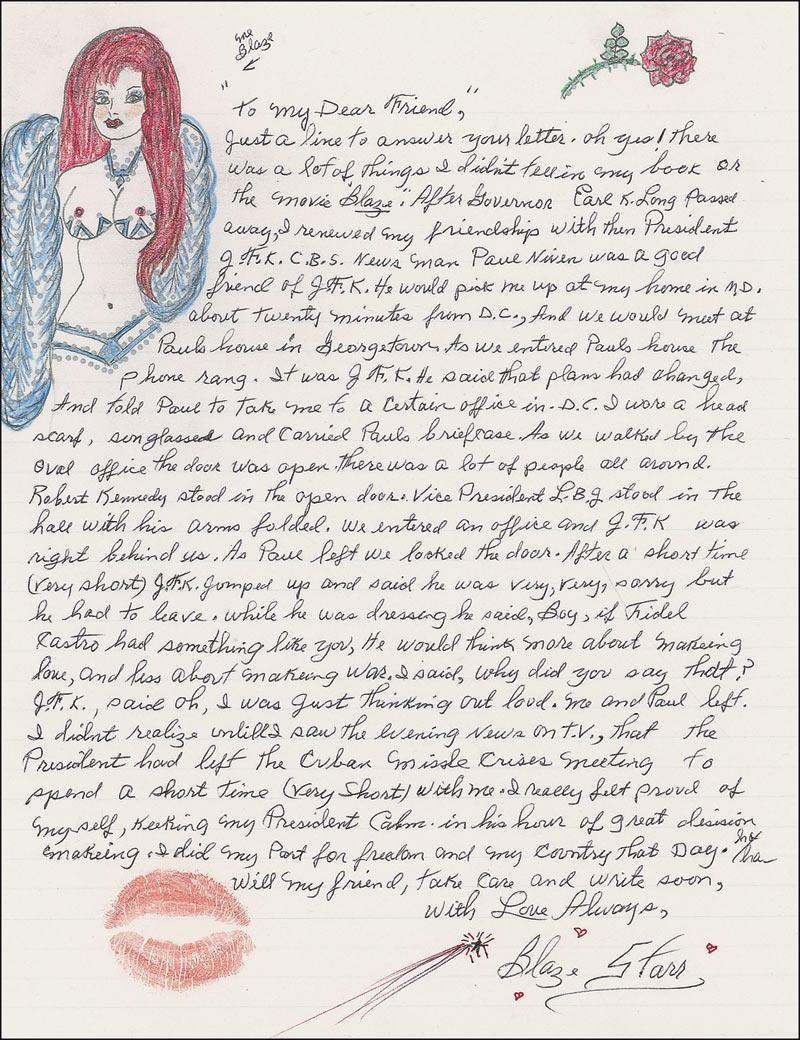 me
Blaze
"To my Dear Friend,"
Just a line to answer your letter. oh yes! there
was a lot of things I didn't tell in my book or
the movie "Blaze". After Governor Earl K. Long Passed
away, I renewed my friendship with then President
J.F.K. C.B.S. News man Paul Niven was a good
friend of J.F.K. He would pick me up at my home in MD.
about twenty minutes from D.C., And we would meet at
Pauls house in Georgetown. As we entered Pauls house the
phone rang. It was J.F.K. He said that plans had changed,
And told Paul to take me to a Certain office in D.C. I wore a head
scarf, sunglasses and Carried Pauls briefcase. As we walked by the
Oval office the door was open. there was a lot of people all around.
Robert Kennedy stood in the open door. Vice President L.B.J stood in the
hall with his arms folded. We entered an office and J.F.K was
right behind us. As Paul left we locked the door. After a short time
(very short) J.F.K. Jumped up and said he was very, very, sorry but
he had to leave. while he was dressing he said, Boy, if Fidel
Castro had something like you, He would think more about makeing
love, and less about makeing war. I said, why did you say that?
J.F.K., said oh, I was Just thinking out loud. me and Paul left.
I didnt realize untill I saw the evening News on T.V., that the
President had left the Cuban Missle Crises meeting to
spend a short time (Very Short) with me. I really felt proud of
my self, keeking my President Calm. in his hour of great dicision
makeing. I did my Part for freedom and my Country that Day. ha
ha
Will my friend, take Care and write soon,
With Love Always,
Blaze Starr